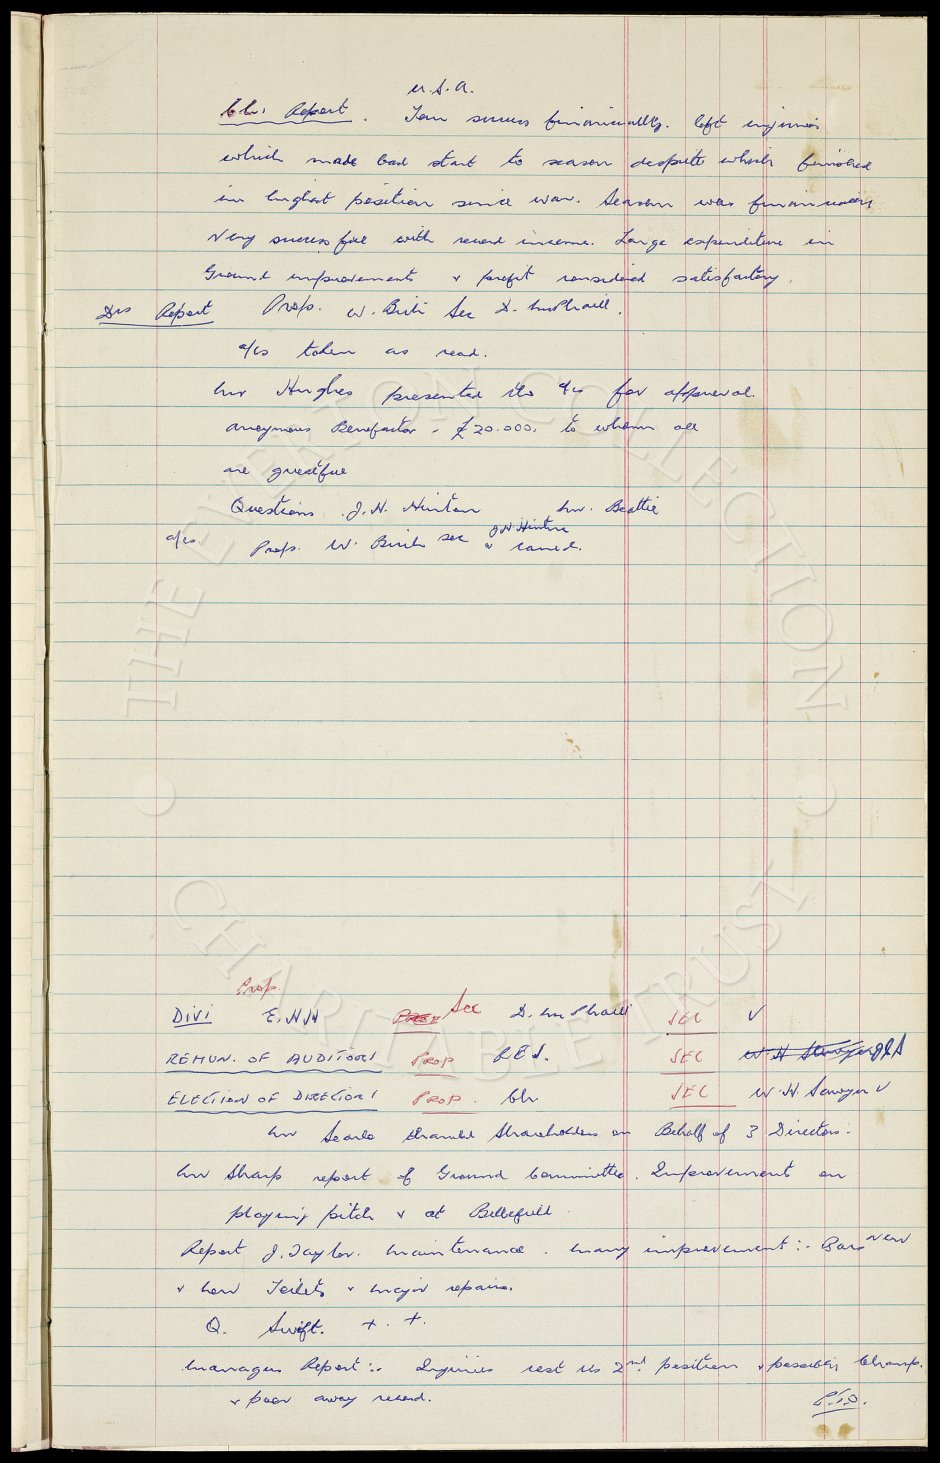 U.S.A.
Ch. Report. Tour success financially. left injuries
which made bad start to season despite which finished
in highest position since war. Season was financially
very successful with record income. Large expenditure in
Ground improvements & profit considered satisfactory.
Drs Report Prop. W. Birch Sec D. McPhaill.
a/cs taken as read.
Mr Hughes presented the a/cs for approval.
anoymous Benefactor - £20.000. to whom all
are grateful
Questions. J.H. Hinton Mr. Beattie
J H Hinton
a/cs. Prop. W. Birch sec & carried.
Prop.
DIVI E.H.H Sec D. McPhaill SEC ✓
REMUN. OF AUDITORS PROP R E S. SEC W H Sawyer
ELECTION OF DIRECTORS PROP. Ch SEC W. H. Sawyer ✓
Mr Searle thanked Shareholders on Behalf of 3 Directors.
Mr Sharp report of Ground Committee. Improvement on
playing pitch & at Bellefield.
Report J. Taylor. Maintenance. Many improvement:- Bars New
& New Toilets & Major repairs.
Q. Swift. + . +.
Managers Report:- Injuries cost us 2nd position & possibly Champ.
& poor away record.
P.T.O.